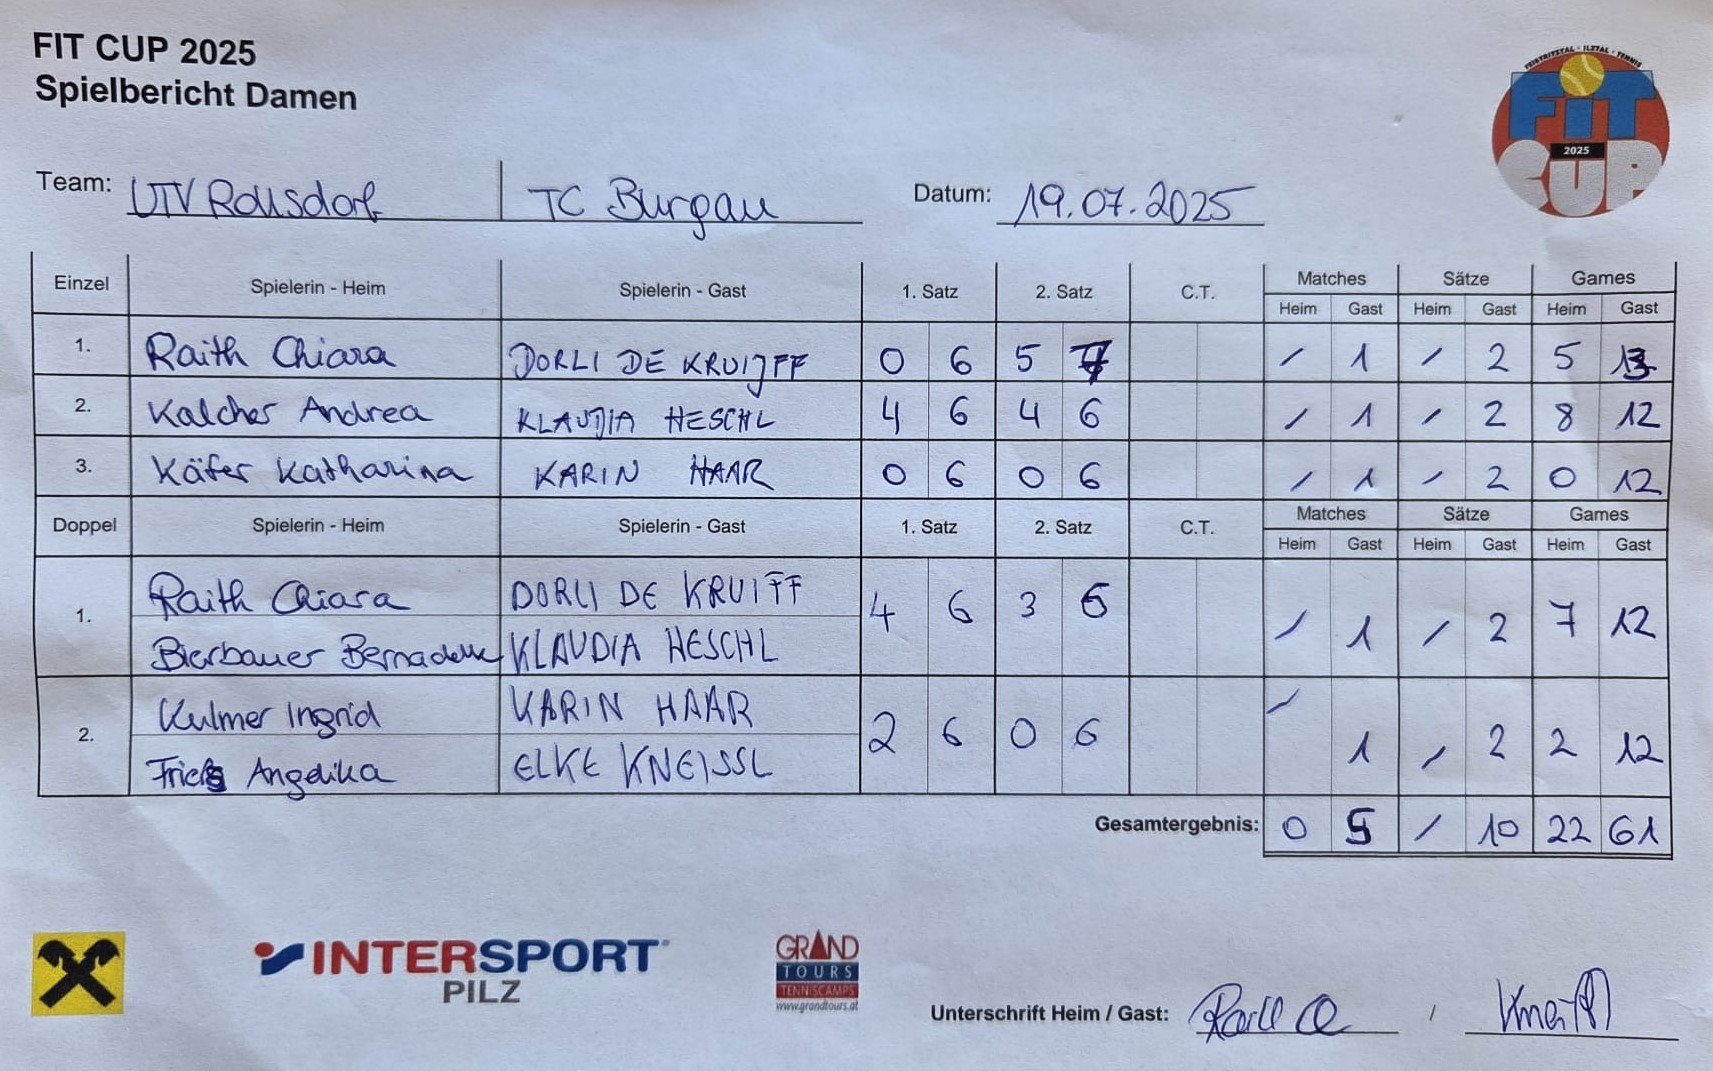 FIT CUP 2025
Spielbericht Damen
FEISTRITZTAL · ILZTAL · TENNIS
FiT
2025
CUP
Team: UTV TC Burgau Datum: 19.07.2025
Einzel Spielerin - Heim Spielerin - Gast 1. Satz 2. Satz C.T. Matches Sätze Games
Heim Gast Heim Gast Heim Gast
1. Raith Chiara DORLI DE KRUIJFF 0 6 5 7 / 1 / 2 5 13
2. Kalcher Andrea KLAUDIA HESCHL 4 6 4 6 / 1 / 2 8 12
3. Käfer Katharina KARIN HAAR 0 6 0 6 / 1 / 2 0 12
Doppel Spielerin - Heim Spielerin - Gast 1. Satz 2. Satz C.T. Matches Sätze Games
Heim Gast Heim Gast Heim Gast
1. Raith Chiara DORLI DE KRUIFF 4 6 3 6 / 1 / 2 7 12
Bierbauer Bernadette KLAUDIA HESCHL
2. Kulmer Ingrid KARIN HAAR 2 6 0 6 / 1 / 2 2 12
Angelika ELKE KNEISSL
Gesamtergebnis: 0 5 / 10 22 61
INTERSPORT
PILZ
GRAND
TOURS
TENNISCAMPS
www.grandtours.at
Unterschrift Heim / Gast: /